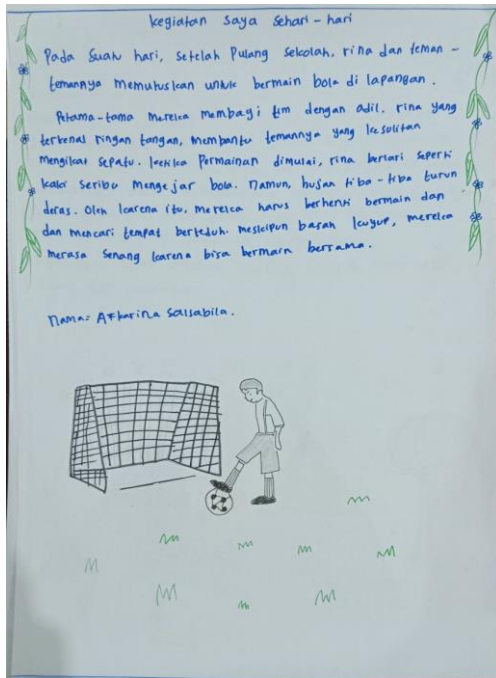 kegiatan saya sehari-hari
Pada suatu hari, setelah Pulang sekolah, rina dan teman-
temannya memutuskan untuk bermain bola di lapangan.
Pertama-tama mereka membagi tim dengan adil. rina yang
terkenal ringan tangan, membantu temannya yang kesulitan
mengikat sepatu. ketika Permainan dimulai, rina berlari seperti
kaki seribu mengejar bola. Namun, hujan tiba-tiba turun
deras. Oleh karena itu, mereka harus berhenti bermain dan
dan mencari tempat berteduh. meskipun basah kuyup, mereka
merasa senang karena bisa bermain bersama.
Nama: Afkarina Salsabila.